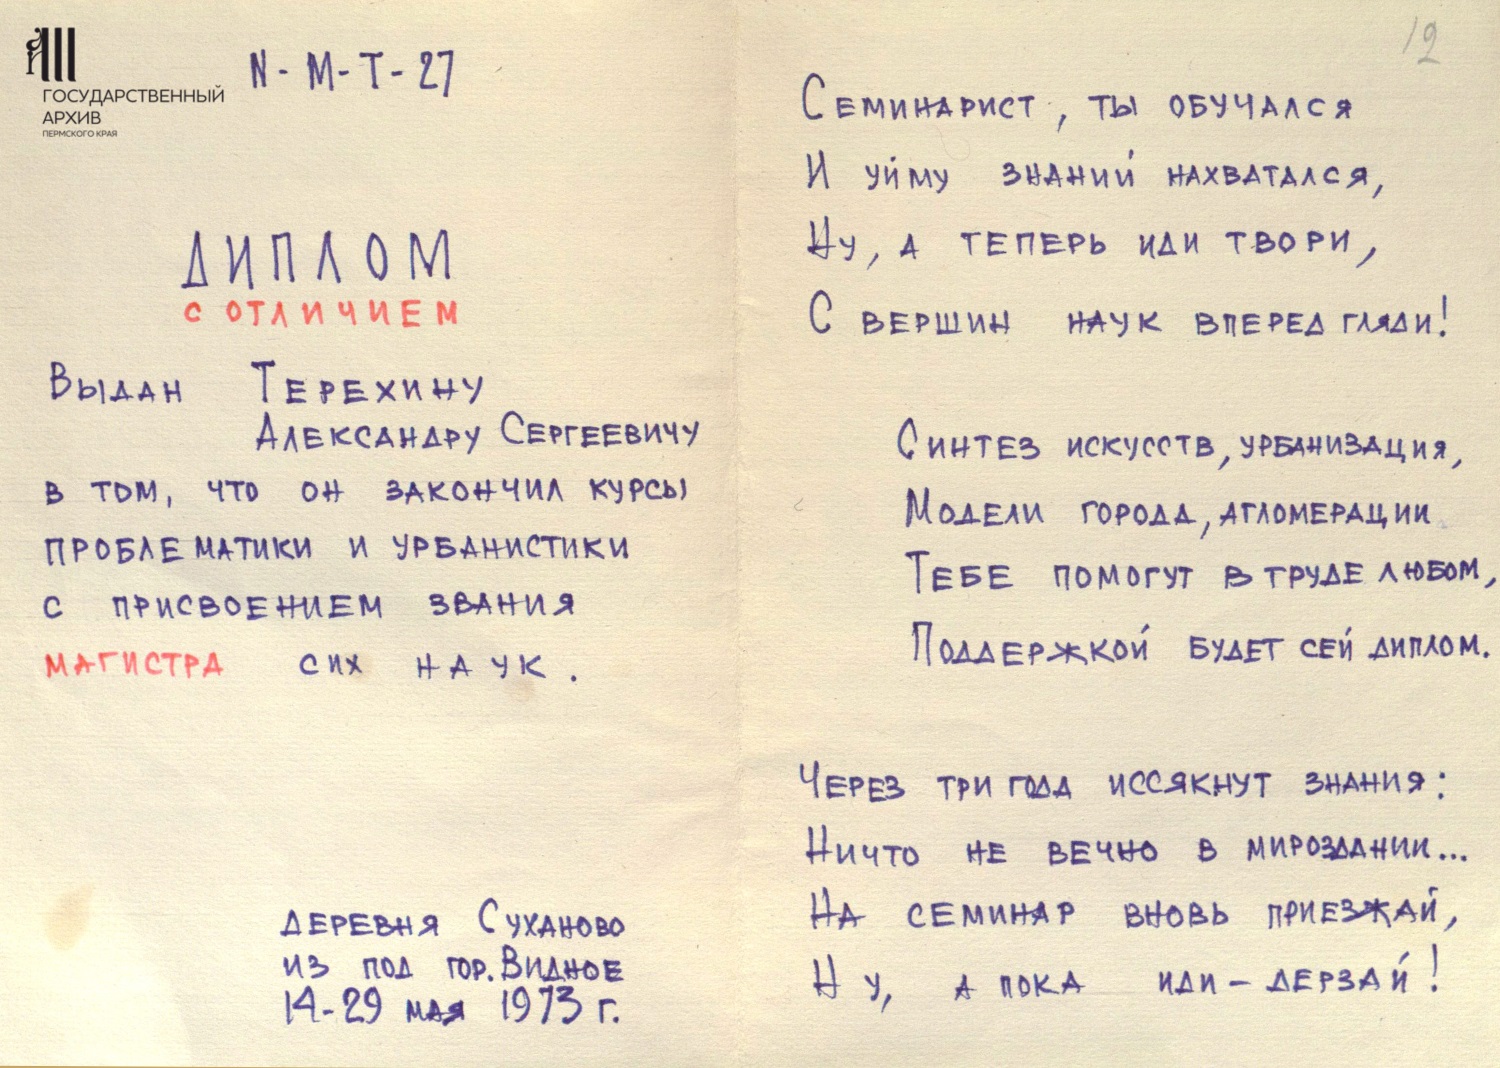 ГОСУДАРСТВЕННЫЙ
АРХИВ
ПЕРМСКОГО КРАЯ
N-М-Т-27
ДИПЛОМ
С ОТЛИЧИЕМ
ВЫДАН ТЕРЕХИНУ
АЛЕКСАНДРУ СЕРГЕЕВИЧУ
В ТОМ, ЧТО ОН ЗАКОНЧИЛ КУРСЫ
ПРОБЛЕМАТИКИ И УРБАНИСТИКИ
С ПРИСВОЕНИЕМ ЗВАНИЯ
МАГИСТРА СИХ НАУК.
ДЕРЕВНЯ СУХАНОВО
ИЗ ПОД ГОР. ВИДНОЕ
14-29 МАЯ 1973 Г.
12
СЕМИНАРИСТ, ТЫ ОБУЧАЛСЯ
И УЙМУ ЗНАНИЙ НАХВАТАЛСЯ,
НУ, А ТЕПЕРЬ ИДИ ТВОРИ,
С ВЕРШИН НАУК ВПЕРЕД ГЛЯДИ!
СИНТЕЗ ИСКУССТВ, УРБАНИЗАЦИЯ,
МОДЕЛИ ГОРОДА, АГЛОМЕРАЦИИ
ТЕБЕ ПОМОГУТ В ТРУДЕ ЛЮБОМ,
ПОДДЕРЖКОЙ БУДЕТ СЕЙ ДИПЛОМ.
ЧЕРЕЗ ТРИ ГОДА ИССЯКНУТ ЗНАНИЯ:
НИЧТО НЕ ВЕЧНО В МИРОЗДАНИИ...
НА СЕМИНАР ВНОВЬ ПРИЕЗЖАЙ,
НУ, А ПОКА ИДИ – ДЕРЗАЙ!